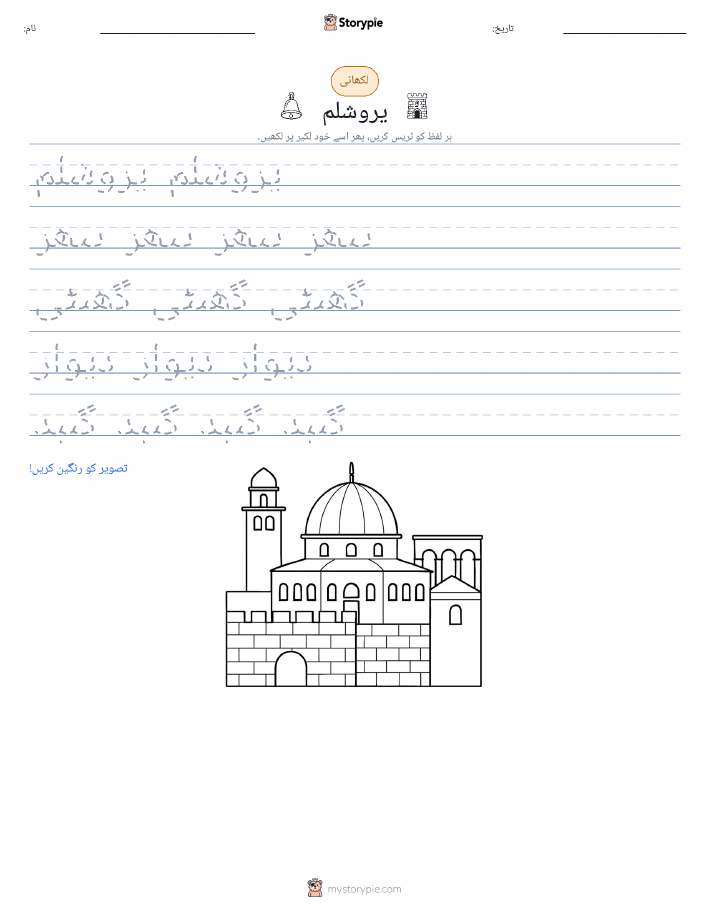 Storypie
نام:
تاریخ:
لکھائی
یروشلم
ہر لفظ کو ٹریس کریں، پھر اسے خود لکیر پر لکھیں۔
یروشلم یروشلم
پتھر پتھر پتھر پتھر
گھنٹی گھنٹی گھنٹی
دیوار دیوار دیوار
گنبد گنبد گنبد گنبد
تصویر کو رنگین کریں!
mystorypie.com